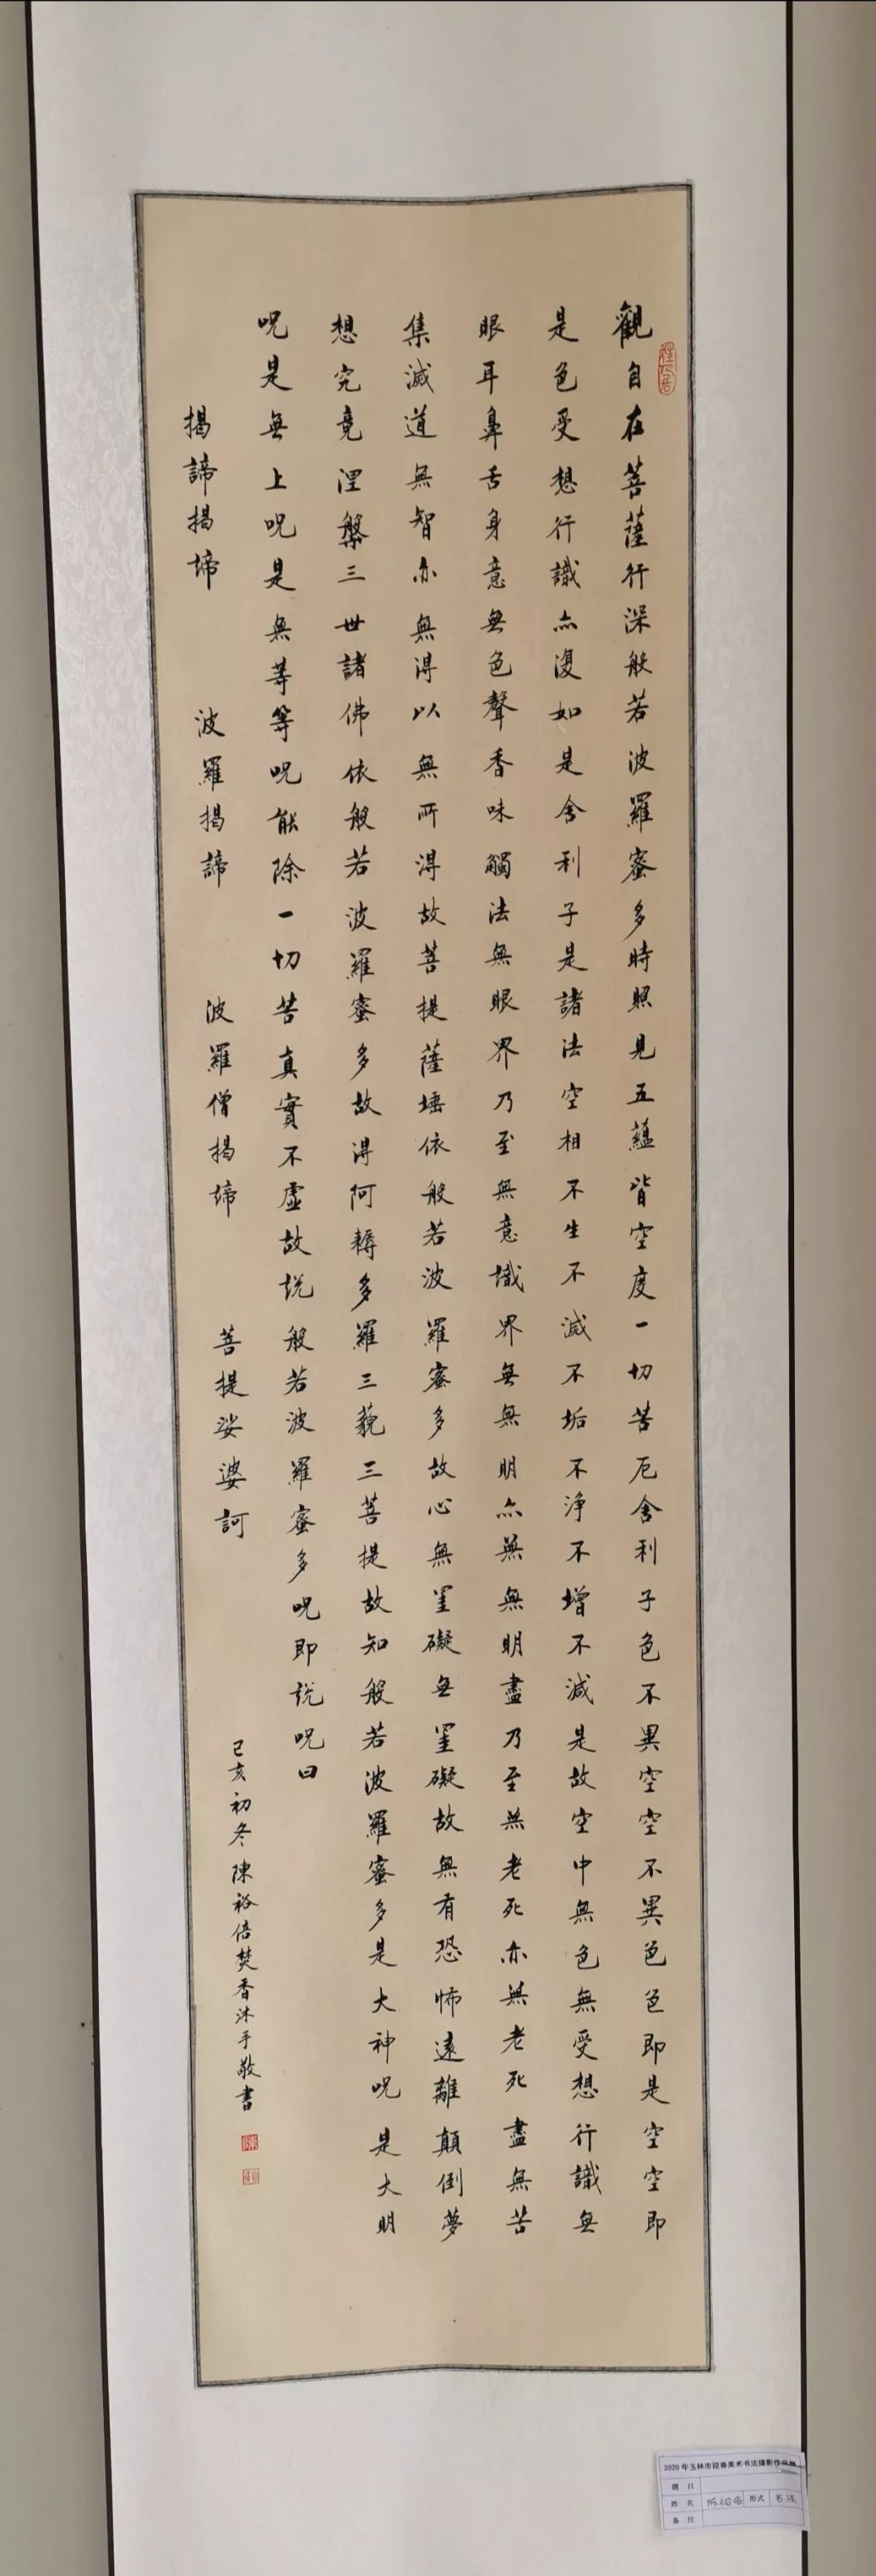 觀自在菩薩行深般若波羅蜜多時照見五蘊皆空度一切苦厄舍利子色不異空空不異色色即是空空即
是色受想行識亦復如是舍利子是諸法空相不生不滅不垢不淨不增不減是故空中無色無受想行識無
眼耳鼻舌身意無色聲香味觸法無眼界乃至無意識界無無明亦無無明盡乃至無老死亦無老死盡無苦
集滅道無智亦無得以無所得故菩提薩埵依般若波羅蜜多故心無罣礙無罣礙故無有恐怖遠離顛倒夢
想究竟涅槃三世諸佛依般若波羅蜜多故得阿耨多羅三藐三菩提故知般若波羅蜜多是大神呪是大明
呪是無上呪是無等等呪能除一切苦真實不虛故說般若波羅蜜多呪即說呪曰
揭諦揭諦 波羅揭諦 波羅僧揭諦 菩提娑婆訶
己亥初冬陳裕倍焚香沐手敬書
2020年玉林市迎春美术书法摄影作品展
题目
姓名 陈裕倍 形式 书法
备注